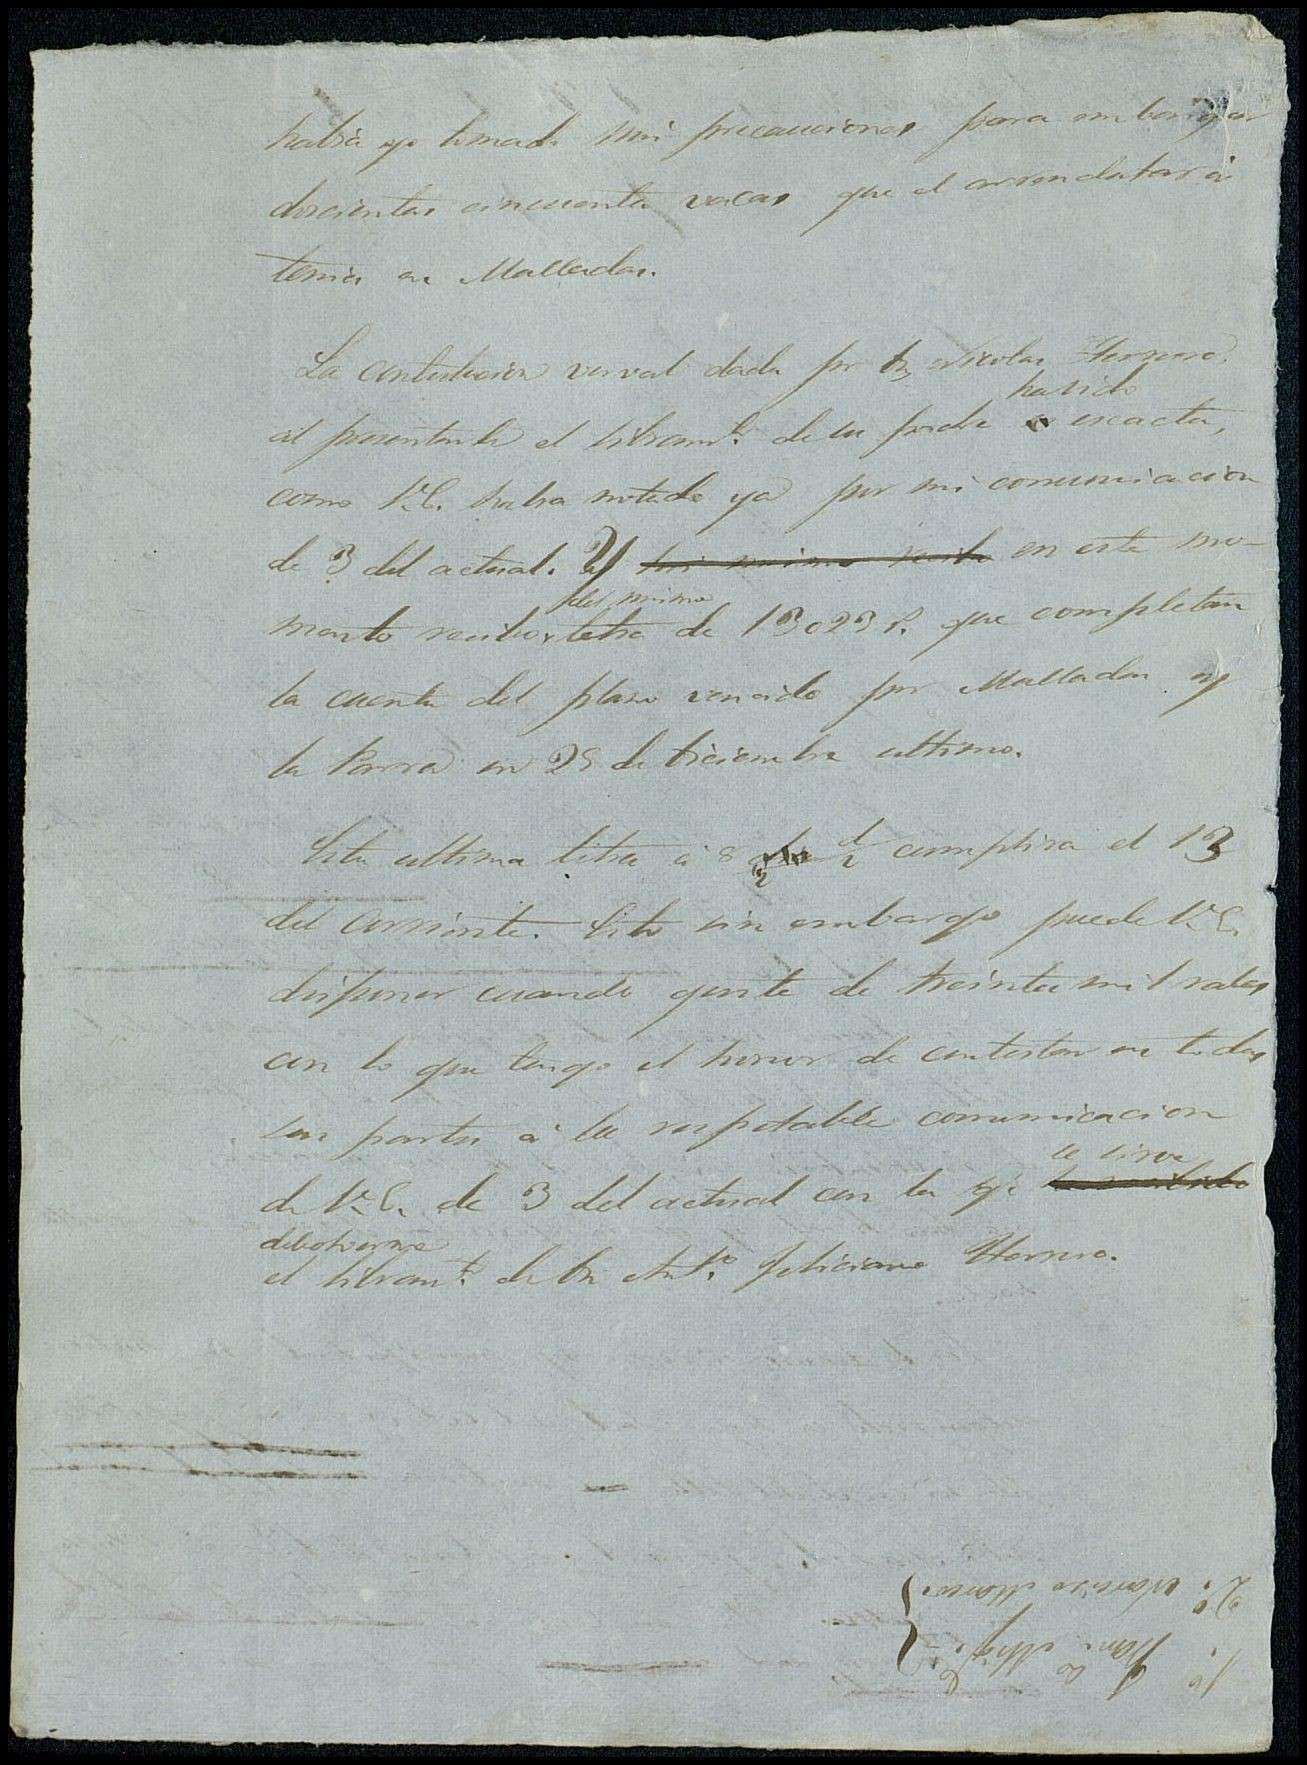 habia yo tomado mis precauciones para embargar
doscientas cincuenta vacas que el arrendatario
tenia en Malladas.
La contestacion verval dada por Dn Nicolas Herrero.
ha sido
al presentarle el libramto. de su parte exacta,
como V.E. habra notado ya por mi comunicacion
de 3 del actual. Y en este mo-
del mismo
mento recibo letra de 13023 r. que completan
la cuenta del plazo vencido por Malladas y
la Parra en 25 de Diciembre ultimo.
Esta ultima letra á 8 d/v cumplira el 13
del corriente. Esto sin embargo puede V.E.
disponer cuando guste de treinta mil reales
con lo que tengo el honor de contestar en todas
sus partes á la respetable comunicacion
se sirve
de V.E. de 3 del actual con la qe.
debolverme
el libramto. de Dn Anto. Feliciano Herrero.